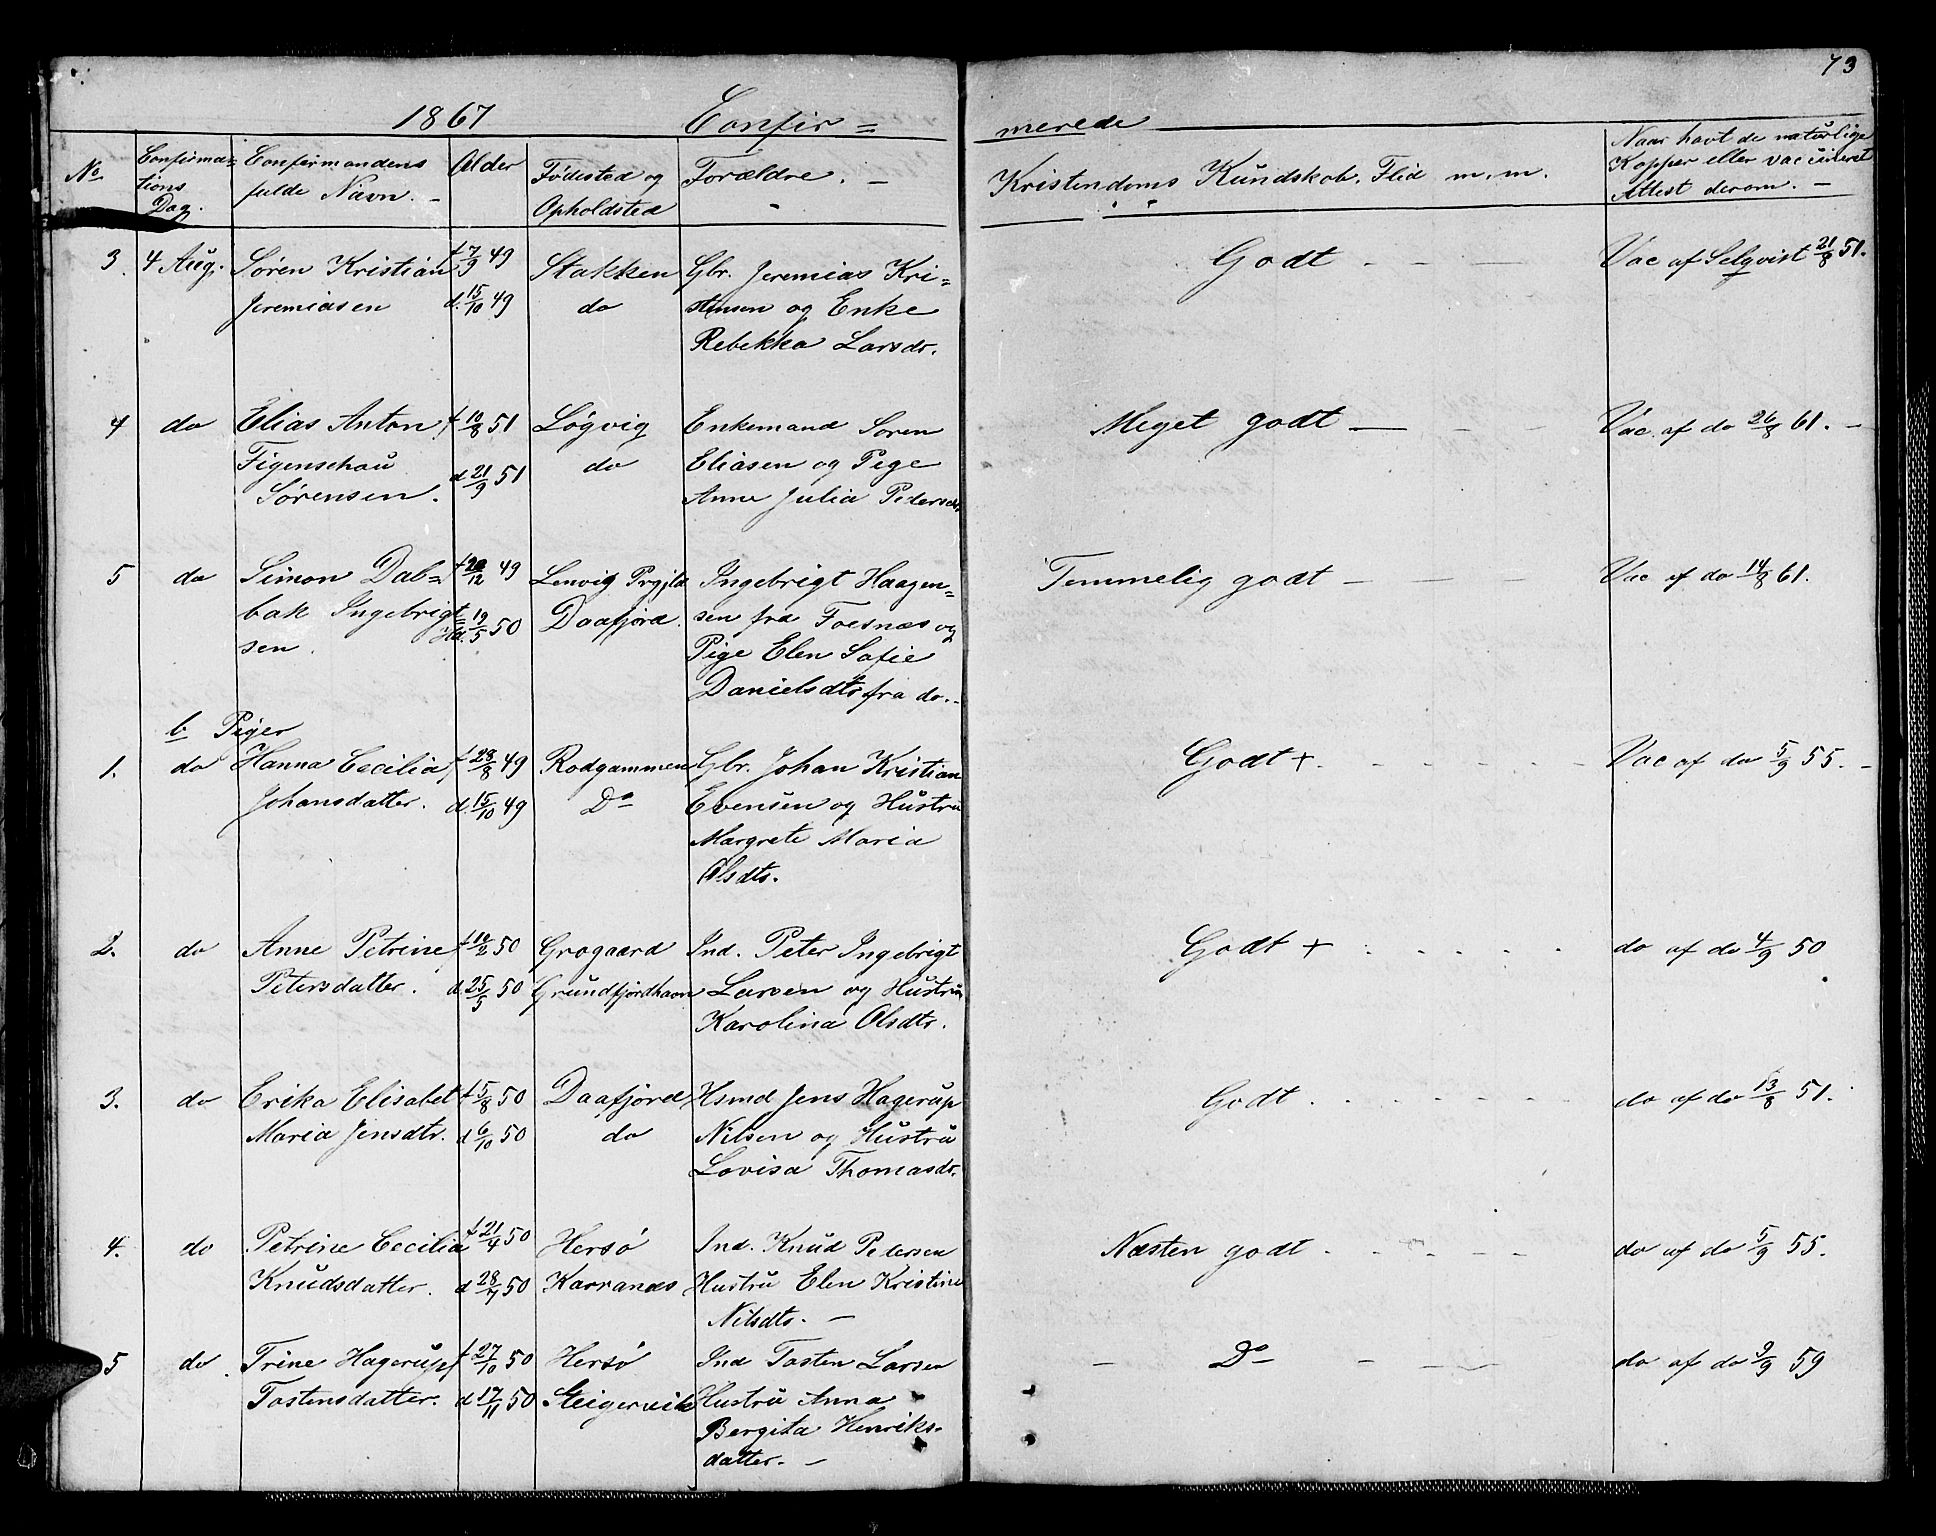 73
1867 Confir= merede
No
Confirma=
tions
Dag.
Confirmandens
fulde Navn. -
Alder
Fødested og
Opholdsted
Forældre. -
Kristendoms Kundskab. Flid m.m.
Naar havt de naturlige
Kopper eller vaccineret
Attest derom. -
3. 4 Aug. Søren Kristian f 7/9 49 Stakken Gbr. Jeremias Kri= Godt - - - Vac af Selqvist 21/8 51.
Jeremiasen d. 15/10 49 do stensen og Enke
Rebekka Larsdr.
4 do Elias Anton f 10/8 51 Løgvig Enkemand Søren Meget godt - - - Vac. af do 26/8 61. -
Figenschau d 21/9 51 do Eliasen og Pige
Sørensen. Anne Julia Pedersdr
5 do Simon Dal= f 20/12 49 Lenvig Prgjld Ingebrigt Haagen= Temmelig godt - - - Vac af do 14/8 61.
bak Ingebrigt= Hd. 19/5 50 Daafjord. sen fra Foesnæs og
sen. Pige Elen Sofie
Danielsdtr fra do. -
b Piger
1. do Hanna Cecilia f 28/8 49 Rodgammen Gbr. Johan Kristian Godt +. - - - Vac af do 5/9 55. -
Johansdatter. d. 15/10 49 Do Evensen og Hustru
Margrete Maria
Olsdtr.
2. do Anne Petrine f 10/2 50 Grogaard Ind. Peter Ingebrigt Godt + - - - do af do 4/9 50
Petersdatter. d. 25/5 50 Grundfjordhavn Larsen og Hustru
Karolina Olsdtr.
3. do Erika Elisabet f 5/8 50 Daafjord Hsmd Jens Hagerup Godt - - - do af do 13/8 51.
Maria Jensdtr. d 6/10 50 do Nilsen og Hustru
Lovisa Thomasdr.
4. do Petrine Cecilia f 21/4 50 Hersø Ind. Knud Petersen Næsten godt - - - do af do 5/9 55.
Knudsdatter. d 28/4 50 Karvanæs Hustru Elen Kristine
Nilsdtr. -
5 do. Trine Hagerup f 27/10 50 Hersø Ind Tosten Larsen - Do - - - do af do 9/9 59
Tostensdatter. d. 17/11 50 Steigervik Hustru Anna
Bergita Henriks-
datter. -